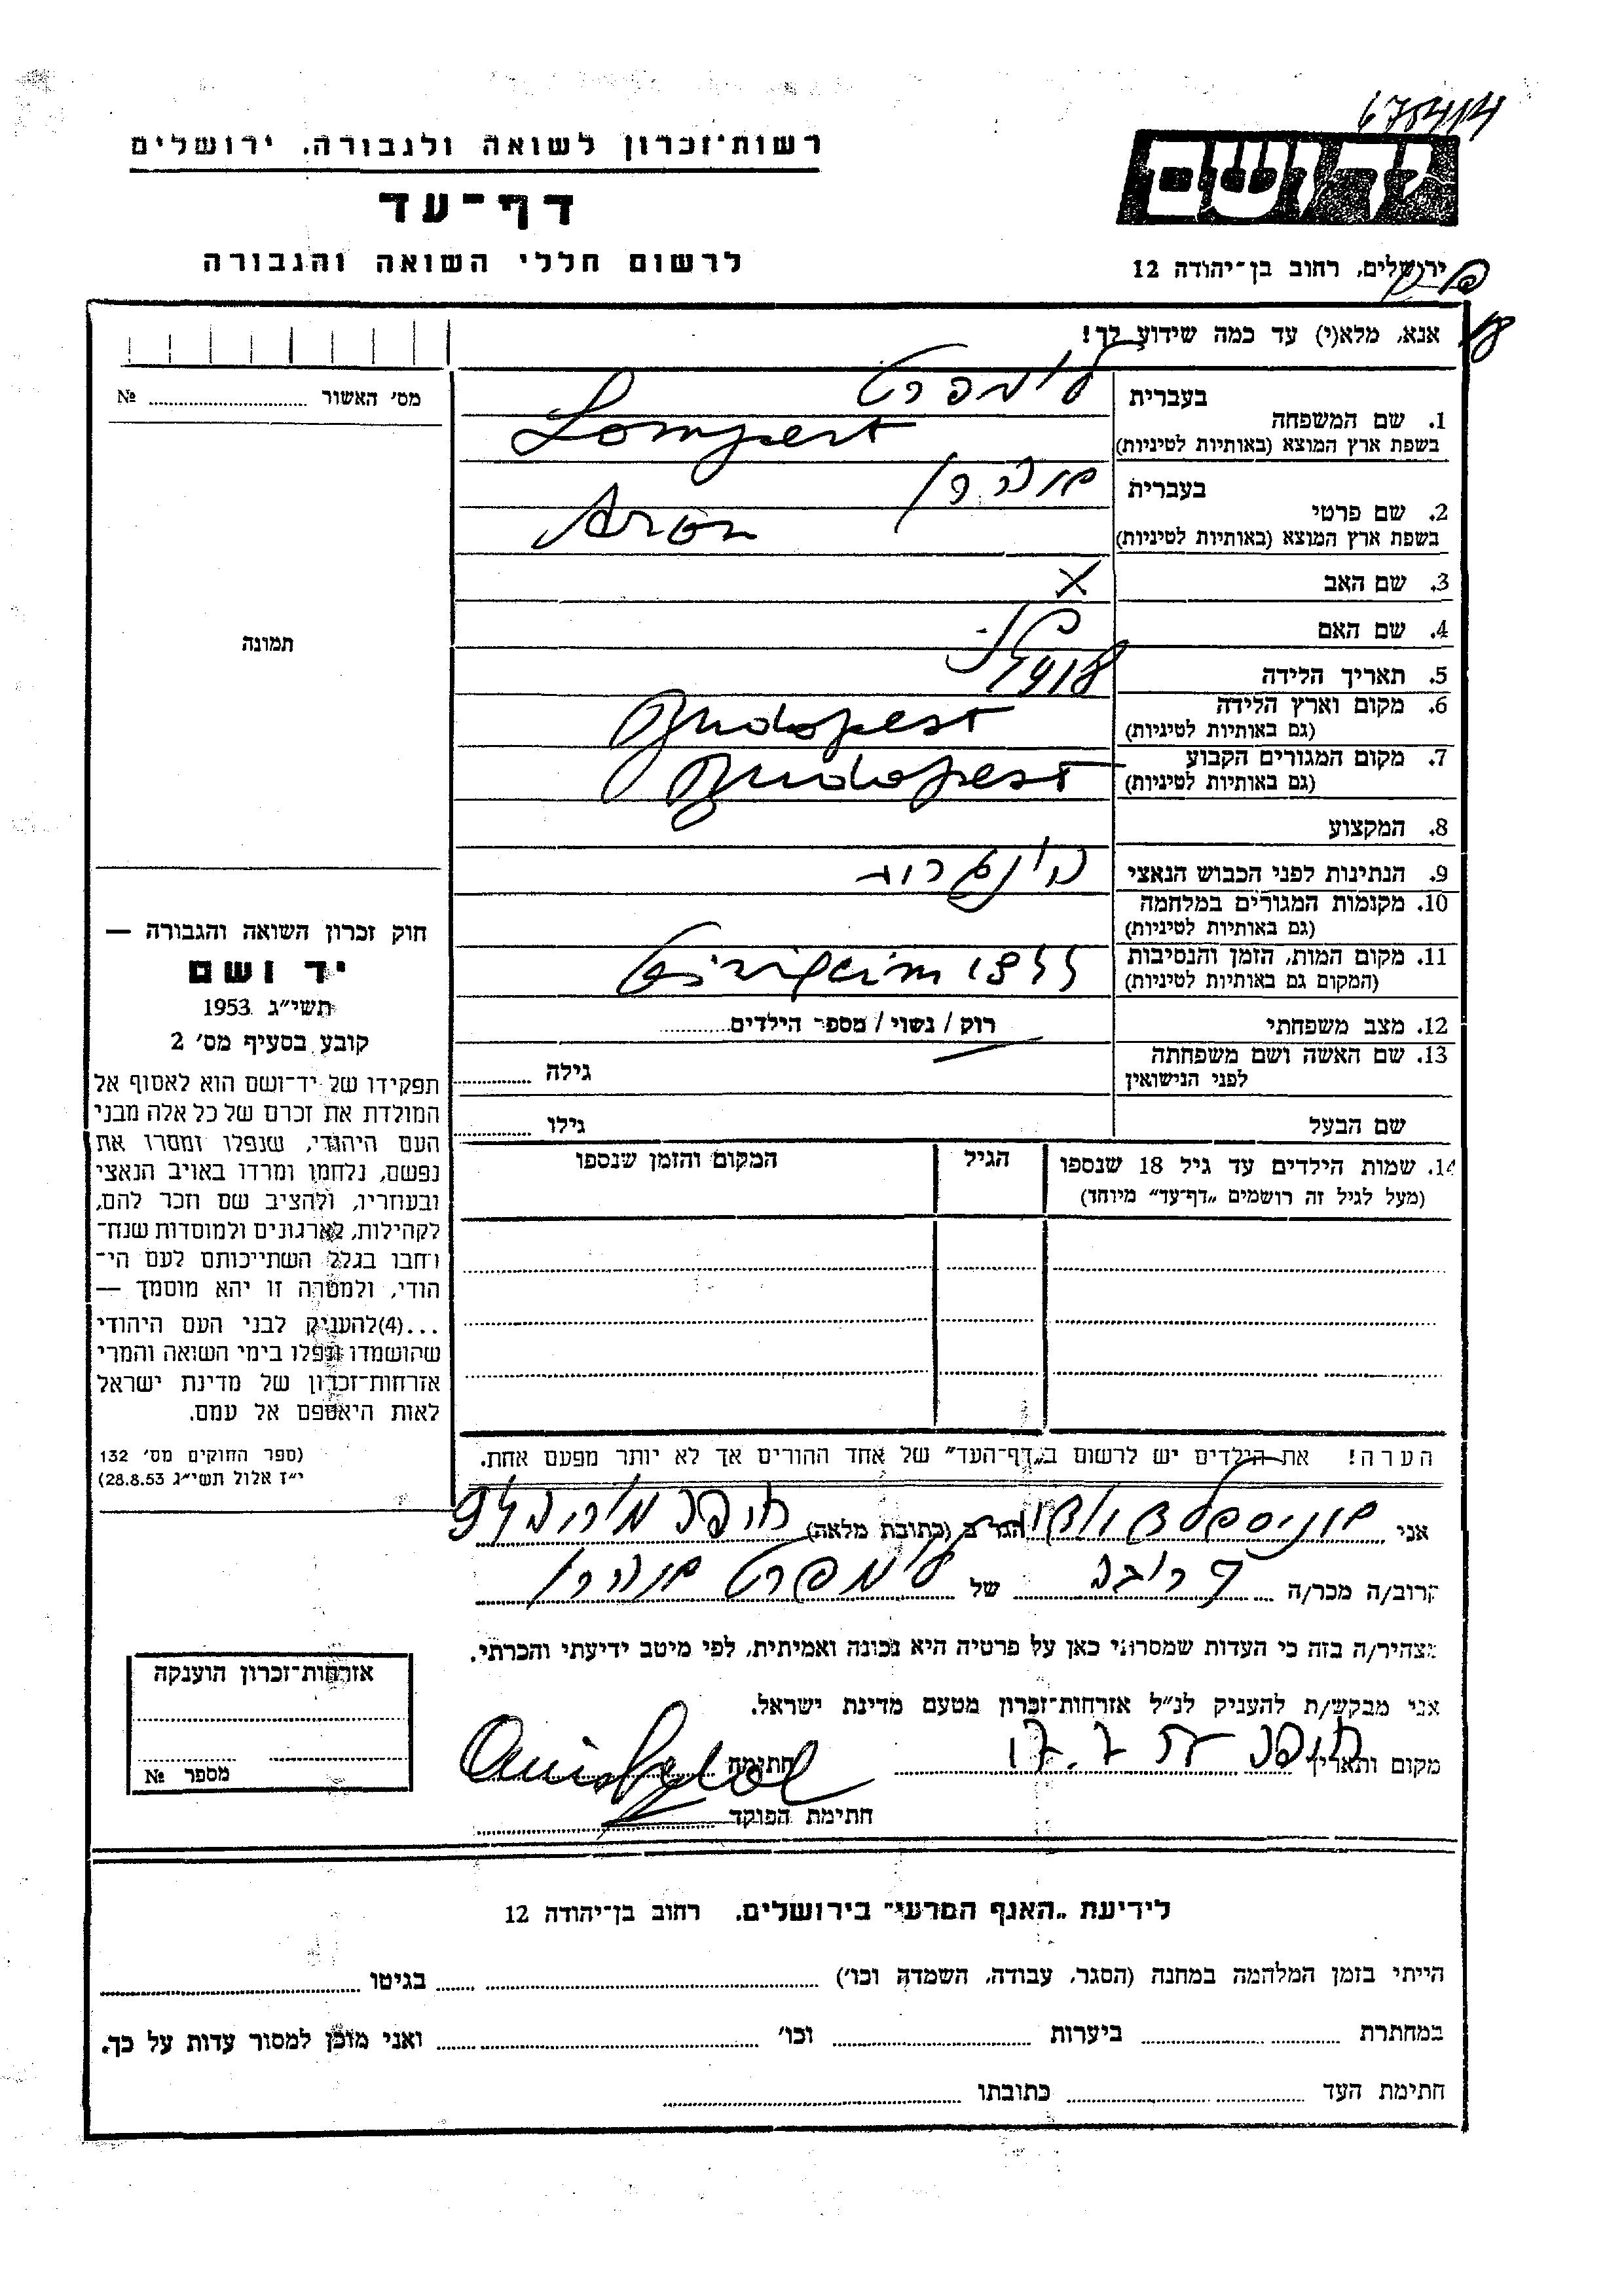 675414
רשות־זכרון לשואה ולגבורה. ירושלים
יד ושם
דף־עד
לרשום חללי השואה והגבורה
ירושלים, רחוב בן־יהודה 12
אנא, מלא(י) עד כמה שידוע לך!
מס׳ האשור № ........
1. שם המשפחה בעברית למפרט
בשפת ארץ המוצא (באותיות לטיניות) Lompert
2. שם פרטי בעברית אהרן
בשפת ארץ המוצא (באותיות לטיניות) Aron
3. שם האב X
4. שם האם
5. תאריך הלידה
6. מקום וארץ הלידה (גם באותיות לטיניות) Budapest
7. מקום המגורים הקבוע (גם באותיות לטיניות) Budapest
8. המקצוע
9. הנתינות לפני הכבוש הנאצי
10. מקומות המגורים במלחמה (גם באותיות לטיניות)
11. מקום המות, הזמן והנסיבות (המקום גם באותיות לטיניות) 1944
12. מצב משפחתי רוק / נשוי / מספר הילדים........
13. שם האשה ושם משפחתה לפני הנישואין גילה ........
שם הבעל גילו ........
14. שמות הילדים עד גיל 18 שנספו (מעל לגיל זה רושמים „דף־עד” מיוחד)
הגיל
המקום והזמן שנספו
הערה! את הילדים יש לרשום ב„דף־העד” של אחד ההורים אך לא יותר מפעם אחת.
תמונה
חוק זכרון השואה והגבורה —
יד ושם
תשי״ג 1953
קובע בסעיף מס׳ 2
תפקידו של יד־ושם הוא לאסוף אל
המולדת את זכרם של כל אלה מבני
העם היהודי, שנפלו ומסרו את
נפשם, נלחמו ומרדו באויב הנאצי
ובעוזריו, ולהציב שם וזכר להם,
לקהילות, לארגונים ולמוסדות שנח־
רבו בגלל השתייכותם לעם הי־
הודי, ולמטרה זו יהא מוסמך —
...(4)להעניק לבני העם היהודי
שהושמדו ונפלו בימי השואה והמרי
אזרחות־זכרון של מדינת ישראל
לאות היאספם אל עמם.
(ספר החוקים מס׳ 132
י״ז אלול תשי״ג 28.8.53)
אני הגר ב (כתובת מלאה) חיפה
קרוב/ה מכר/ה קרובה של למפרט אהרן
מצהיר/ה בזה כי העדות שמסרתי כאן על פרטיה היא נכונה ואמיתית, לפי מיטב ידיעתי והכרתי.
אני מבקש/ת להעניק לנ״ל אזרחות־זכרון מטעם מדינת ישראל.
מקום ותאריך חיפה חתימה
חתימת הפוקד
אזרחות־זכרון הוענקה
מספר №
לידיעת „האגף המדעי” בירושלים. רחוב בן־יהודה 12
הייתי בזמן המלחמה במחנה (הסגר, עבודה, השמדה וכו׳) ........ בגיטו ........
במחתרת ........ ביערות ........ וכו׳ ........ ואני מוכן למסור עדות על כך.
חתימת העד ........ כתובתו ........